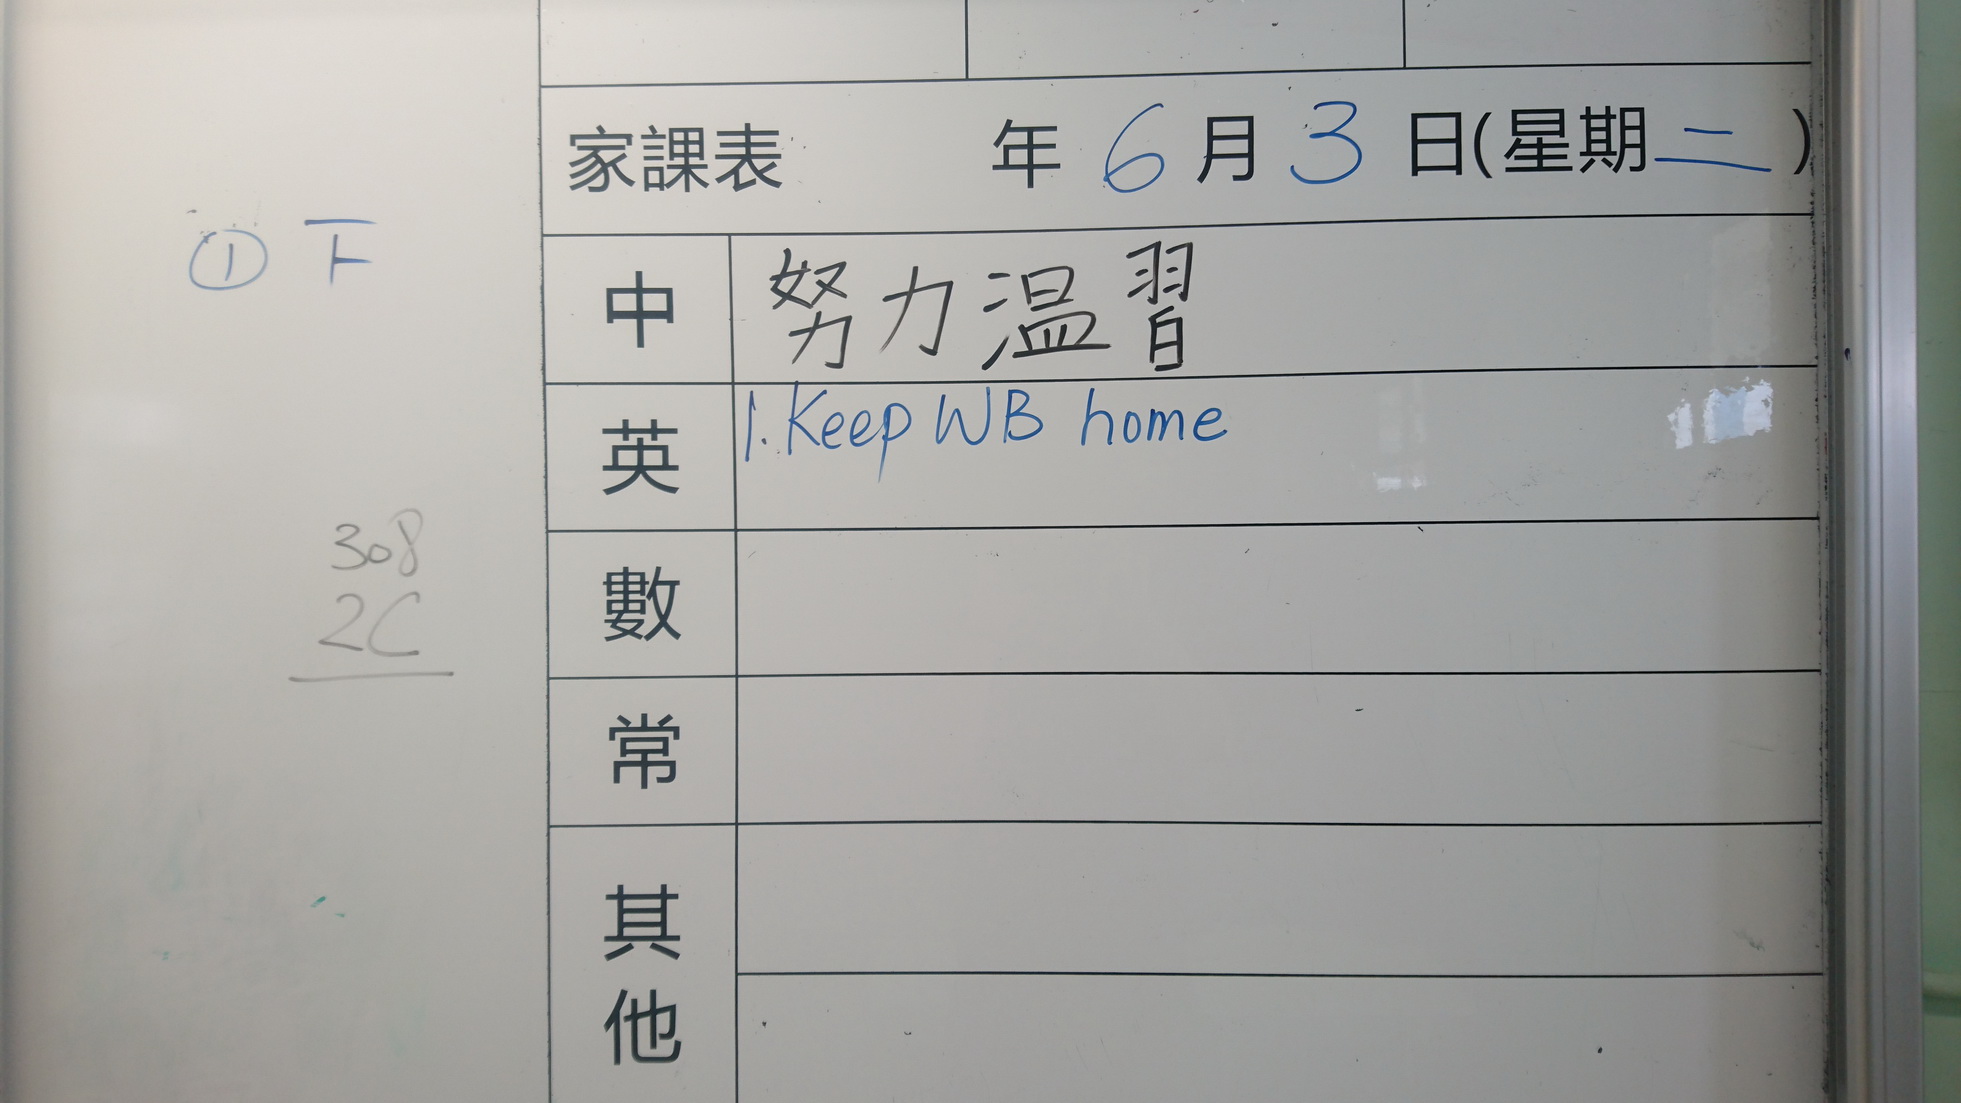 家課表 年 6 月 3 日(星期二)
中 努力温習
英 1. Keep WB home
數
常
其他
① 下
308
2C